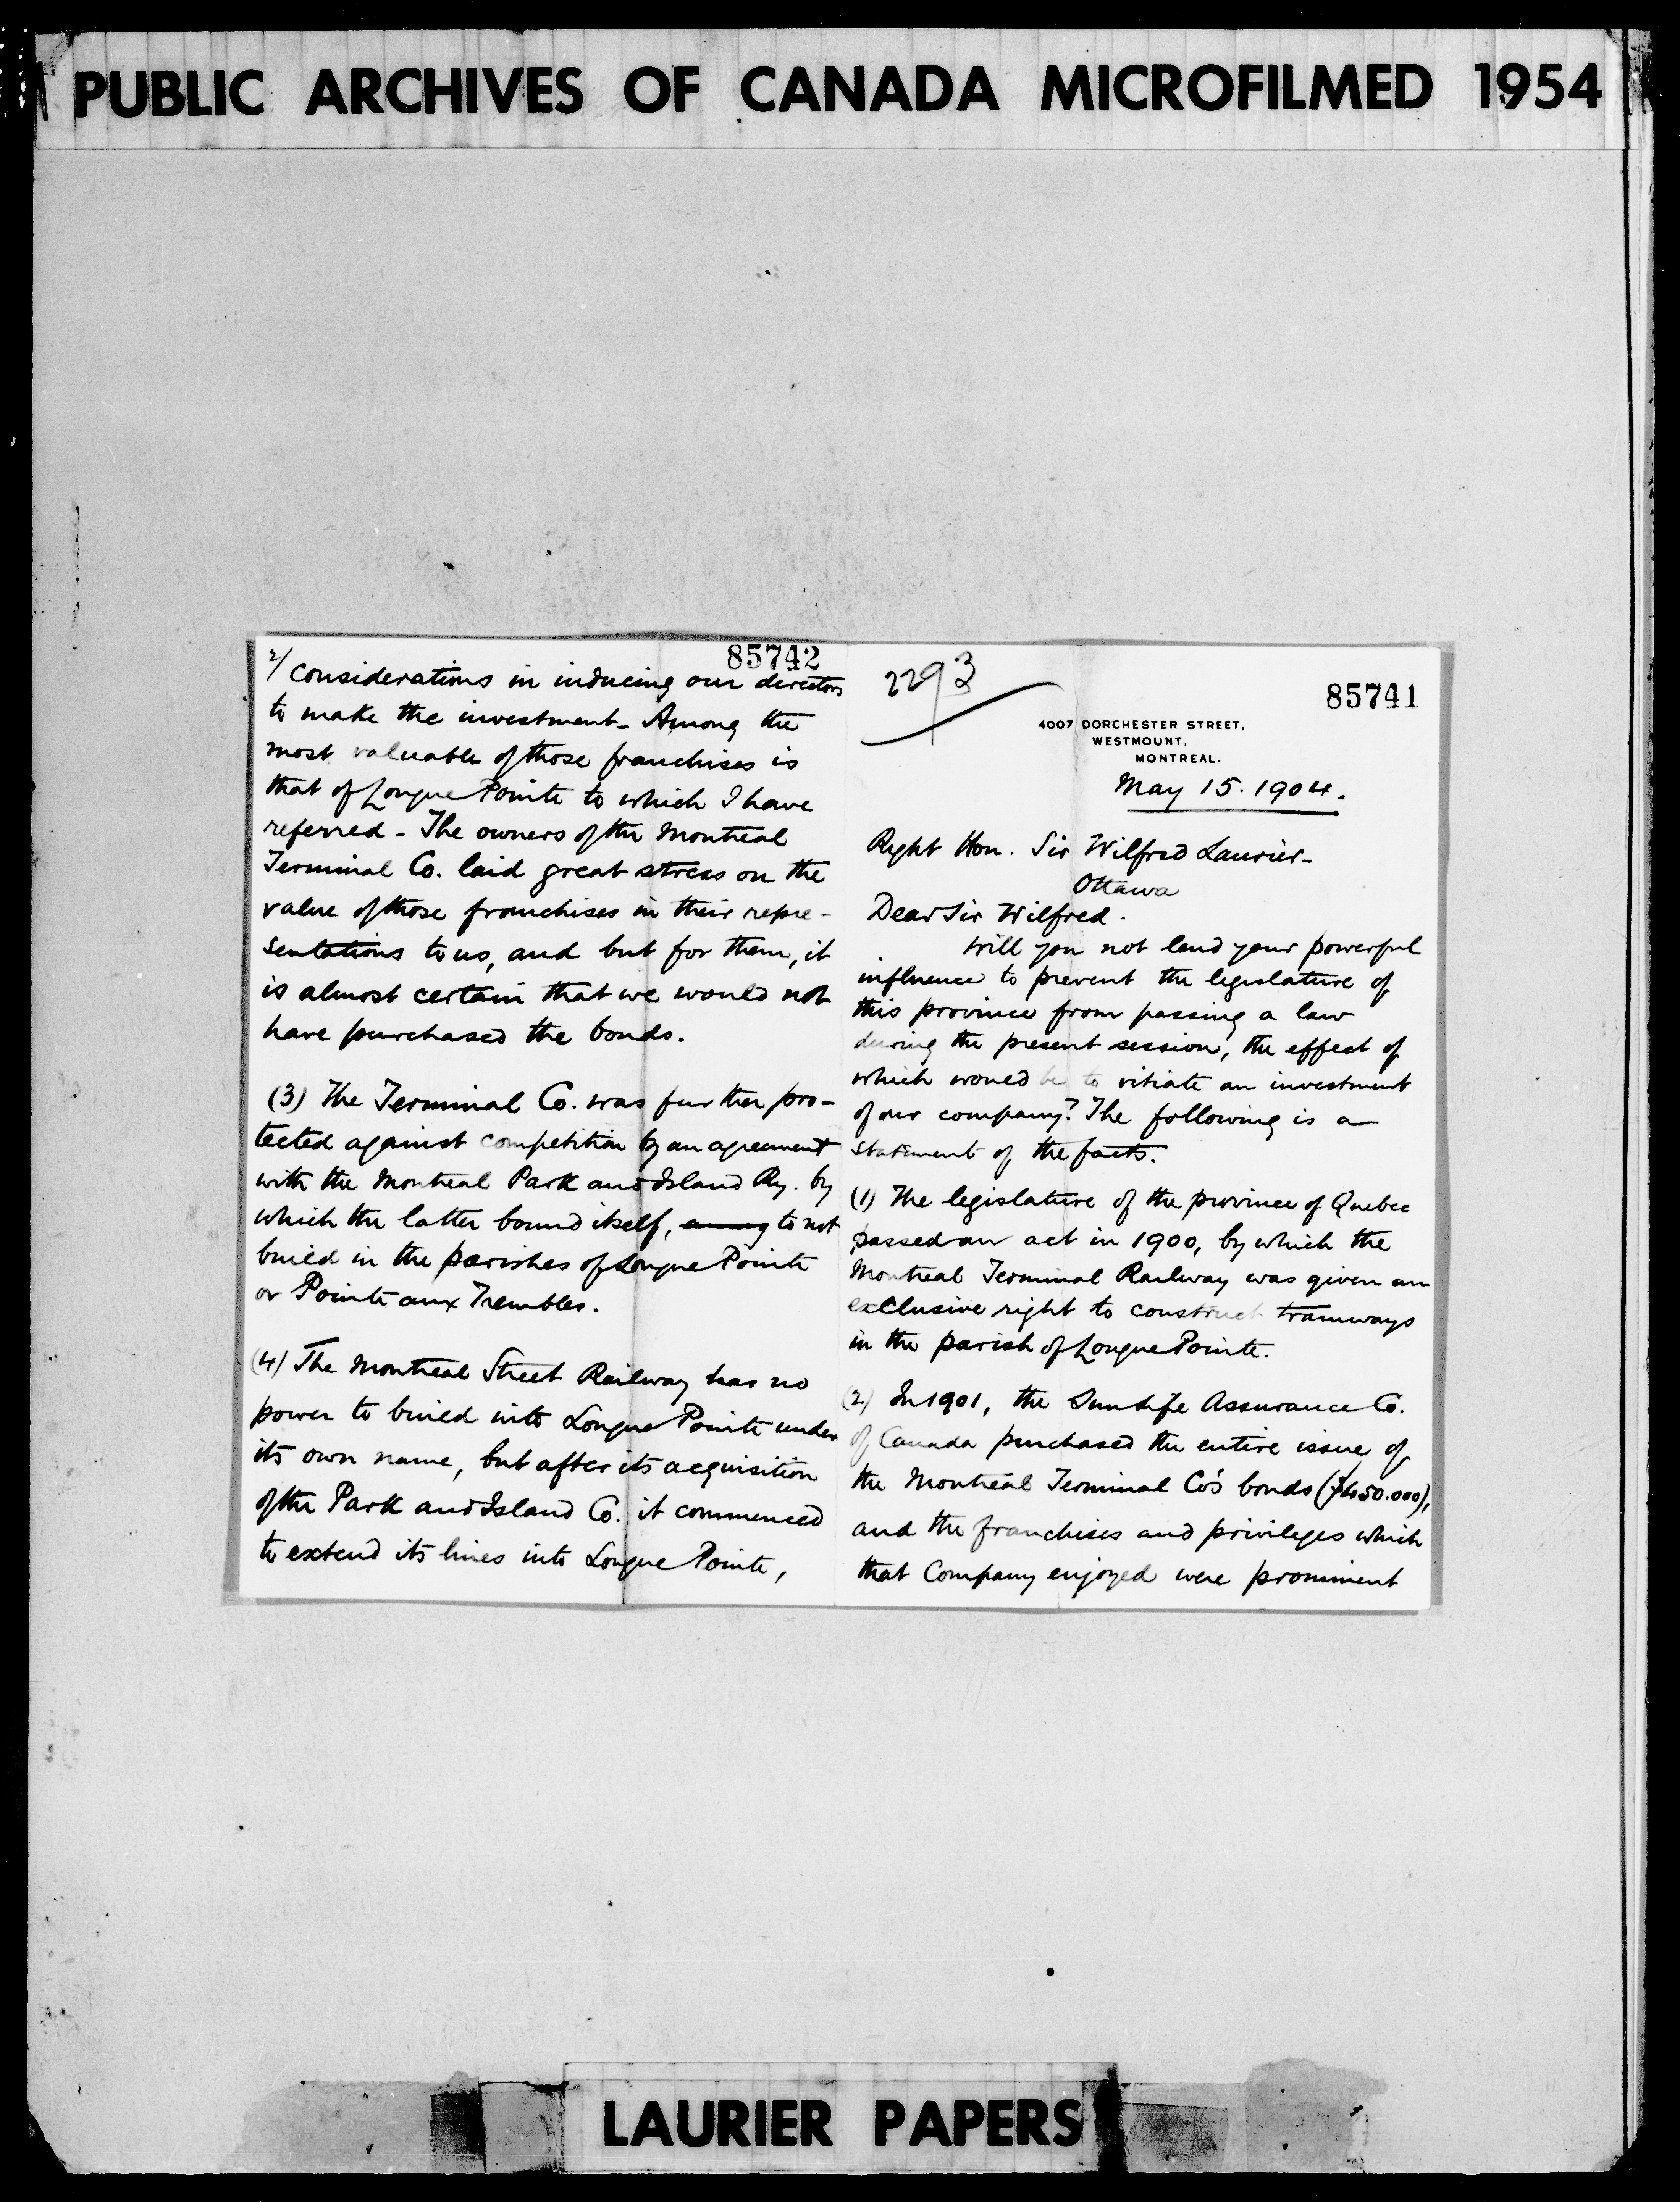 PUBLIC ARCHIVES OF CANADA MICROFILMED 1954
85742
2/ considerations in inducing our directors
to make the investment - Among the
most valuable of those franchises is
that of Longue Pointe to which I have
referred - The owners of the Montreal
Terminal Co. laid great stress on the
value of those franchises in their repre-
sentations to us, and but for them, it
is almost certain that we would not
have purchased the bonds.
(3) The Terminal Co. was further pro-
tected against competition by an agreement
with the Montreal Park and Island Ry. by
which the latter bound itself, to not
build in the parishes of Longue Pointe
or Pointe aux Trembles.
(4) The Montreal Street Railway has no
power to build into Longue Pointe under
its own name, but after its acquisition
of the Park and Island Co. it commenced
to extend its lines into Longue Pointe,
2293
85741
4007 DORCHESTER STREET,
WESTMOUNT,
MONTREAL.
May 15. 1904.
Right Hon. Sir Wilfred Laurier-
Ottawa
Dear Sir Wilfred.
Will you not lend your powerful
influence to prevent the legislature of
this province from passing a law
during the present session, the effect of
which would be to vitiate an investment
of our company? The following is a
statement of the facts.
(1) The legislature of the province of Quebec
passed an act in 1900, by which the
Montreal Terminal Railway was given an
exclusive right to construct tramways
in the parish of Longue Pointe.
(2) In 1901, the Sun Life Assurance Co.
of Canada purchased the entire issue of
the Montreal Terminal Co's bonds ($450.000),
and the franchises and privileges which
that Company enjoyed were prominent
LAURIER PAPERS